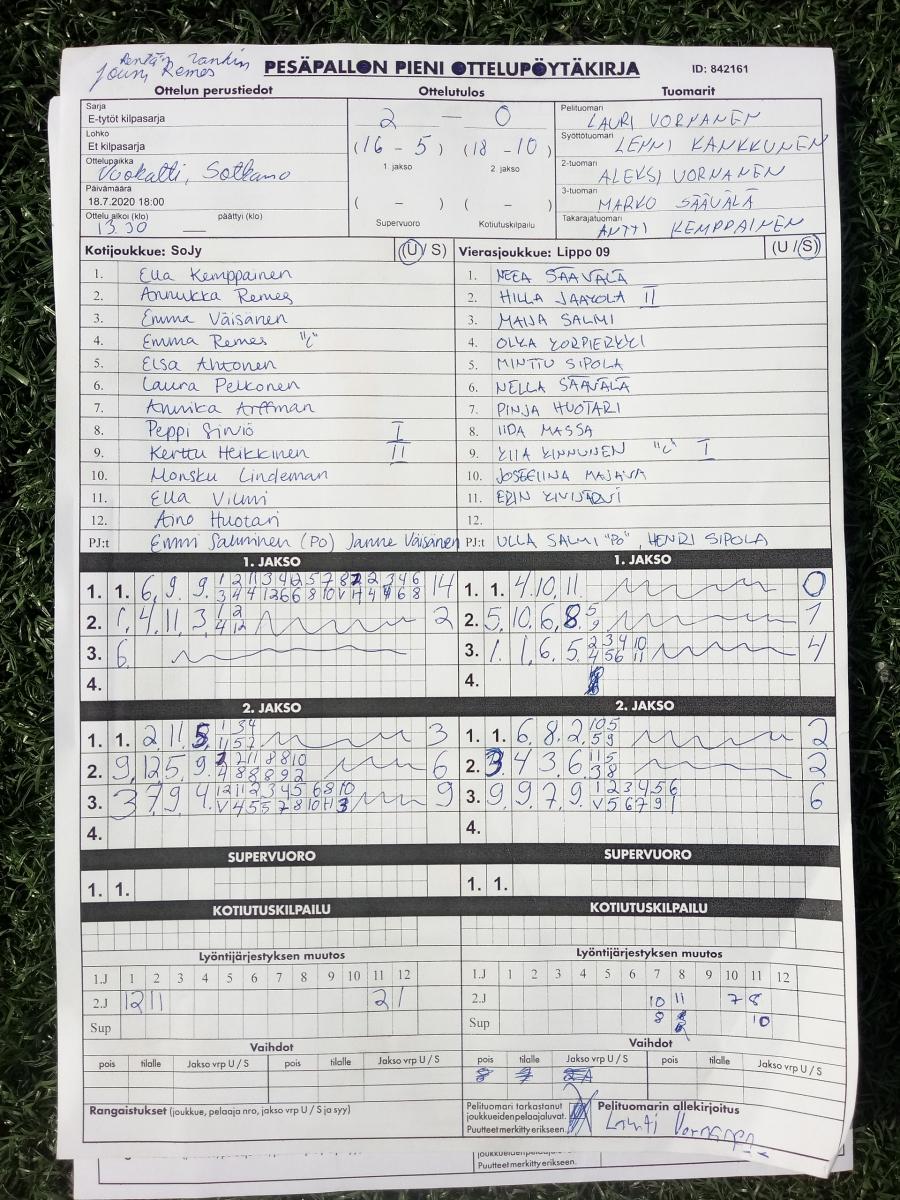 Kentän rankin
Jouni Remes
PESÄPALLON PIENI OTTELUPÖYTÄKIRJA
ID: 842161
Ottelun perustiedot
Ottelutulos
Tuomarit
Sarja
E-tytöt kilpasarja
Lohko
Et kilpasarja
Ottelupaikka
Vuokatti, Sotkamo
Päivämäärä
18.7.2020 18:00
Ottelu alkoi (klo) päättyi (klo)
13.30 —
2 — 0
(16 - 5) (18 - 10)
1. jakso 2. jakso
( - ) ( - )
Supervuoro Kotiutuskilpailu
Pelituomari
LAURI VORNANEN
Syöttötuomari
LENNI KANKKUNEN
2-tuomari
ALEKSI VORNANEN
3-tuomari
MARKO SÄÄVÄLÄ
Takarajatuomari
ANTTI KEMPPAINEN
Kotijoukkue: SoJy (U / S)
1. Ella Kemppainen
2. Annukka Remes
3. Emma Väisänen
4. Emma Remes "C"
5. Elsa Ahtonen
6. Laura Pelkonen
7. Annika Arffman
8. Peppi Sirviö I
9. Kerttu Heikkinen II
10. Monsku Lindeman
11. Ella Vilmi
12. Aino Huotari
PJ:t Emmi Salminen (PO) Janne Väisänen
Vierasjoukkue: Lippo 09 (U / S)
1. NEEA SÄÄVÄLÄ
2. HILLA JAAKOLA II
3. MAIJA SALMI
4. OLKA KORPIERKKI
5. MINTTU SIPOLA
6. NELLA SÄÄVÄLÄ
7. PINJA HUOTARI
8. IIDA MASSA
9. KIIA KINNUNEN "C" I
10. JOSEFIINA MAJAVA
11. ERIN KIVIJÄRVI
12.
PJ:t ULLA SALMI "PO", HENRI SIPOLA
1. JAKSO
1. 1. 6, 9. 9. 14
2. 1, 4, 11, 3, 2
3. 6.
4.
1. JAKSO
1. 1. 4. 10, 11. 0
2. 5, 10, 6, 8. 1
3. 1. 1, 6, 5. 4
4.
2. JAKSO
1. 1. 2, 11, 5. 3
2. 9, 12 5, 9. 6
3. 3 7, 9 4. 9
4.
2. JAKSO
1. 1. 6, 8. 2. 2
2. 3. 4 3, 6. 2
3. 9, 9, 7, 9. 6
4.
SUPERVUORO
1. 1.
SUPERVUORO
1. 1.
KOTIUTUSKILPAILU
KOTIUTUSKILPAILU
Lyöntijärjestyksen muutos
1.J 1 2 3 4 5 6 7 8 9 10 11 12
2.J 12 11 2 1
Sup
Vaihdot
pois tilalle Jakso vrp U / S pois tilalle Jakso vrp U / S
Rangaistukset (joukkue, pelaaja nro, jakso vrp U / S ja syy)
Lyöntijärjestyksen muutos
1.J 1 2 3 4 5 6 7 8 9 10 11 12
2.J 10 11 7 8
Sup 8 10
Vaihdot
pois tilalle Jakso vrp U / S pois tilalle Jakso vrp U / S
Pelituomari tarkastanut
joukkueidenpelaajaluvat.
Puutteet merkitty erikseen.
Pelituomarin allekirjoitus
Lauri Vornanen
joukkueidenpelaajaluvat.
Puutteet merkitty erikseen.